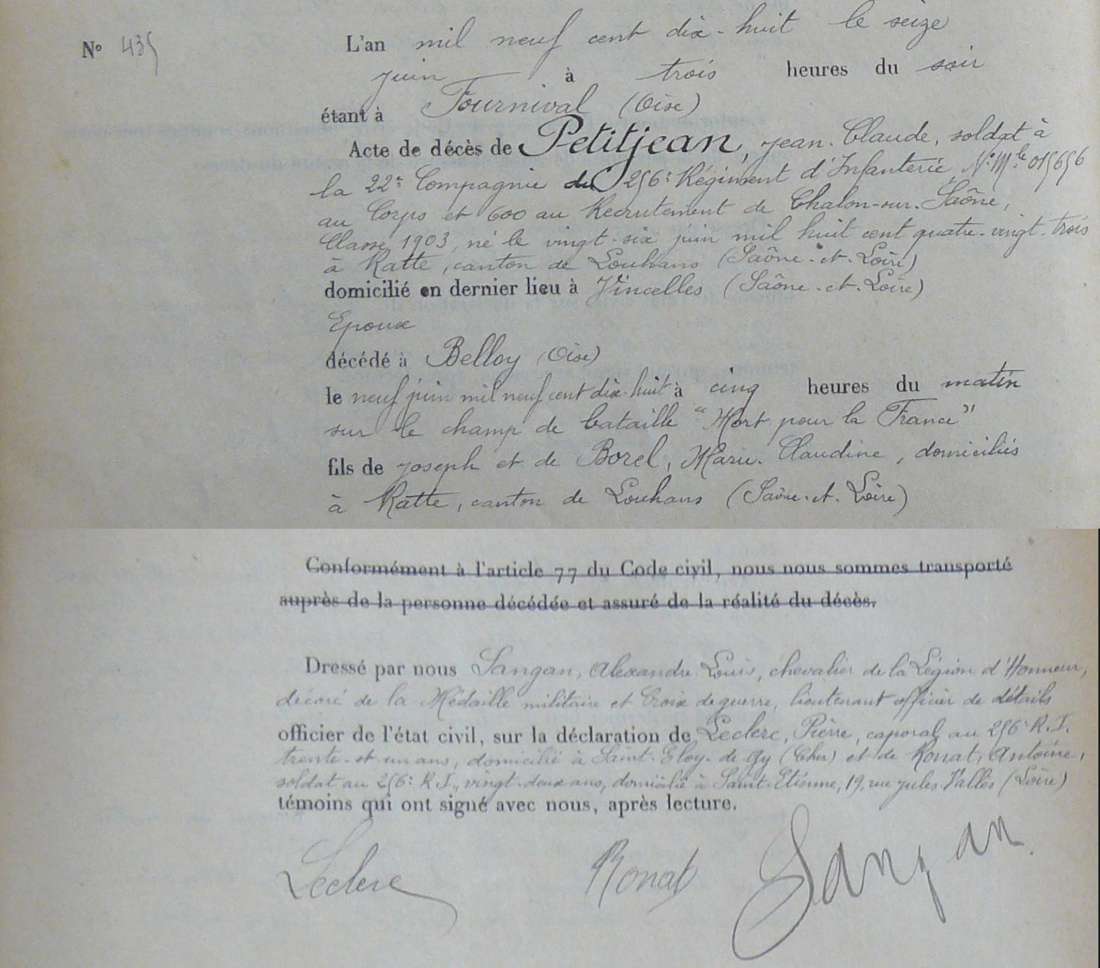 N° 435
L'an mil neuf cent dix-huit le seize
juin à trois heures du soir
étant à Fournival (Oise)
Acte de décès de Petitjean, Jean-Claude, soldat à
la 22e Compagnie du 256e Régiment d'Infanterie, N° Mle 015656
au Corps et 600 au Recrutement de Chalon-sur-Saône,
Classe 1903, né le vingt-six juin mil huit cent quatre-vingt-trois
à Ratte, canton de Louhans (Saône-et-Loire)
domicilié en dernier lieu à Vincelles (Saône-et-Loire)
Epoux
décédé à Belloy (Oise)
le neuf juin mil neuf cent dix-huit à cinq heures du matin
sur le champ de bataille "Mort pour la France"
fils de Joseph et de Borel, Marie-Claudine, domiciliés
à Ratte, canton de Louhans (Saône-et-Loire)
Conformément à l'article 77 du Code civil, nous nous sommes transporté
auprès de la personne décédée et assuré de la réalité du décès.
Dressé par nous Sangan, Alexandre Louis, chevalier de la Légion d'Honneur,
décoré de la Médaille militaire et Croix de guerre, lieutenant officier de détails
officier de l'état civil, sur la déclaration de Leclerc, Pierre, caporal au 256e R.I.
trente-et-un ans, domicilié à Saint-Eloy-de-Gy (Cher) et de Ronat, Antoine,
soldat au 256e R.I., vingt-deux ans, domicilié à Saint-Etienne, 19, rue Jules Vallès (Loire)
témoins qui ont signé avec nous, après lecture.
Leclerc Ronat Sangan